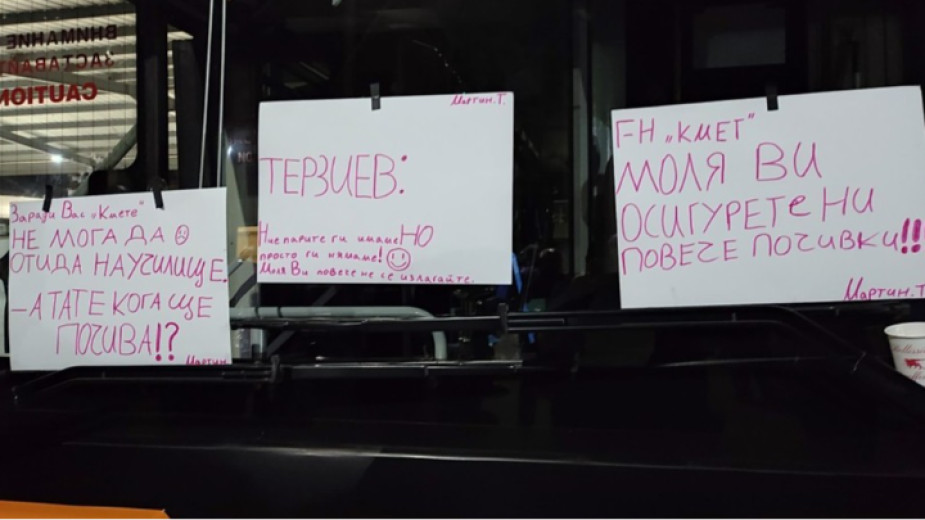 ВНИМАНИЕ
CAUTION
Заради Вас „Кмете"
НЕ МОГА ДА
ОТИДА НА УЧИЛИЩЕ.
– А ТАТЕ КОГА ЩЕ
ПОЧИВА!?
Мартин
Мартин.Т.
ТЕРЗИЕВ:
Ние парите ги имаме НО
просто ги нямаме!
Моля Ви повече не се излагайте.
ГН „КМЕТ"
МОЛЯ ВИ
ОСИГУРЕТЕ НИ
ПОВЕЧЕ ПОЧИВКИ!!
Мартин.Т